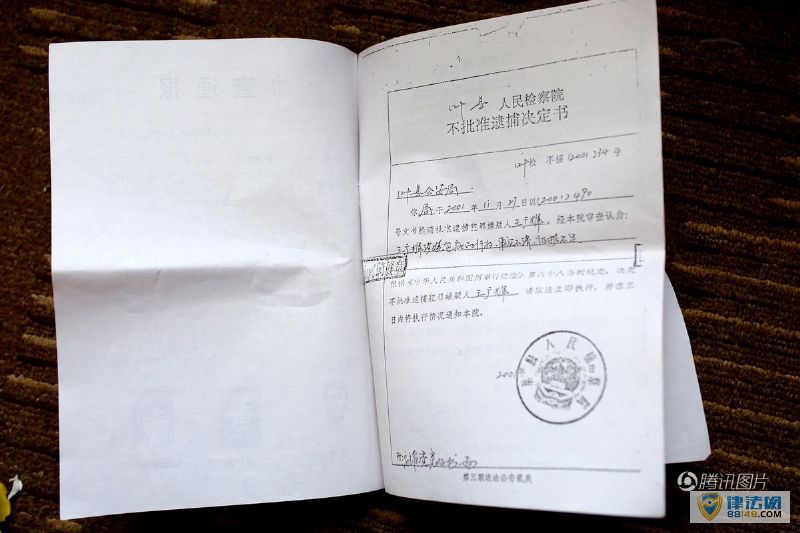 协查通报
叶县 人民检察院
不批准逮捕决定书
叶检 不捕(2001)34号
叶县公安局:
你局于2001年11月27日以(2001)490
号文书提请批准逮捕犯罪嫌疑人王广辉,经本院审查认为:
王广辉 事实不清,证据不足
根据《中华人民共和国刑事诉讼法》第六十八条的规定,决定
不批准逮捕犯罪嫌疑人王广辉。请依法立即执行,并在三
日内将执行情况通知本院。
人民检察院
200
第三联送达公安机关
腾讯图片
律法网
88148.COM